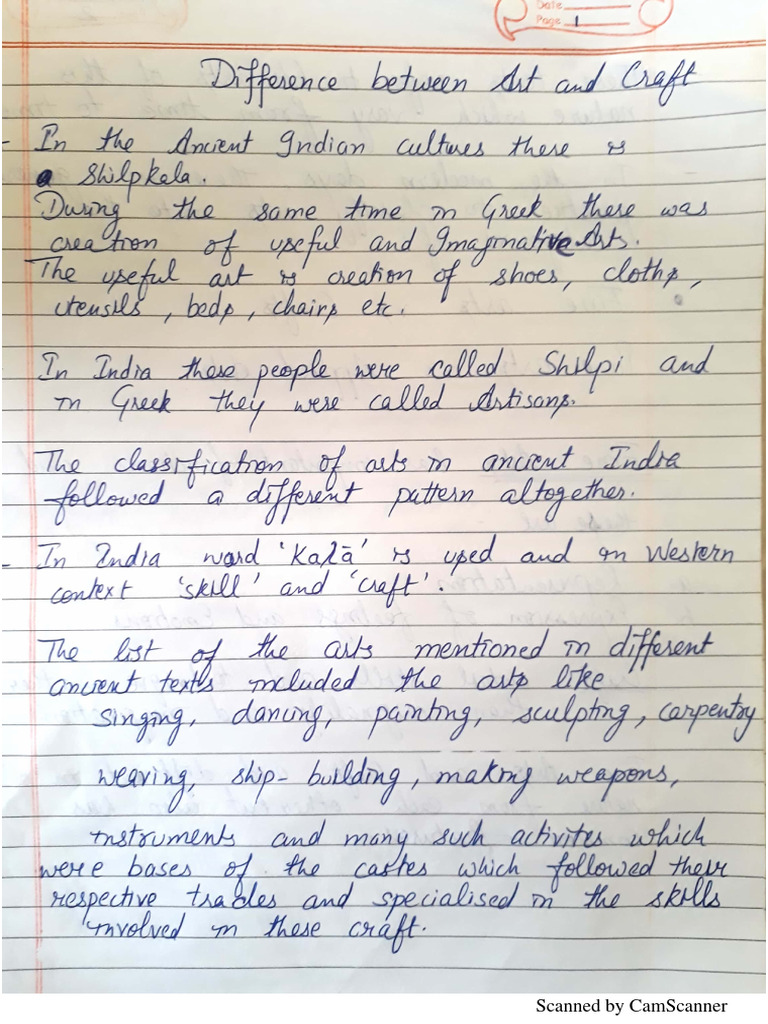 Date
Page 1
Difference between Art and Craft
- In the Ancient Indian cultures there is
a Shilpkala.
During the same time in Greek there was
creation of useful and Imaginative Arts.
The useful art is creation of shoes, cloths,
utensils, beds, chairs etc.
In India these people were called Shilpi and
in Greek they were called Artisans.
The classification of arts in ancient India
followed a different pattern altogether.
- In India word 'Kalā' is used and in Western
context 'skill' and 'craft'.
The list of the arts mentioned in different
ancient texts included the arts like
singing, dancing, painting, sculpting, carpentry
weaving, ship-building, making weapons,
instruments and many such activites which
were bases of the castes which followed their
respective trades and specialised in the skills
involved in these craft.
Scanned by CamScanner